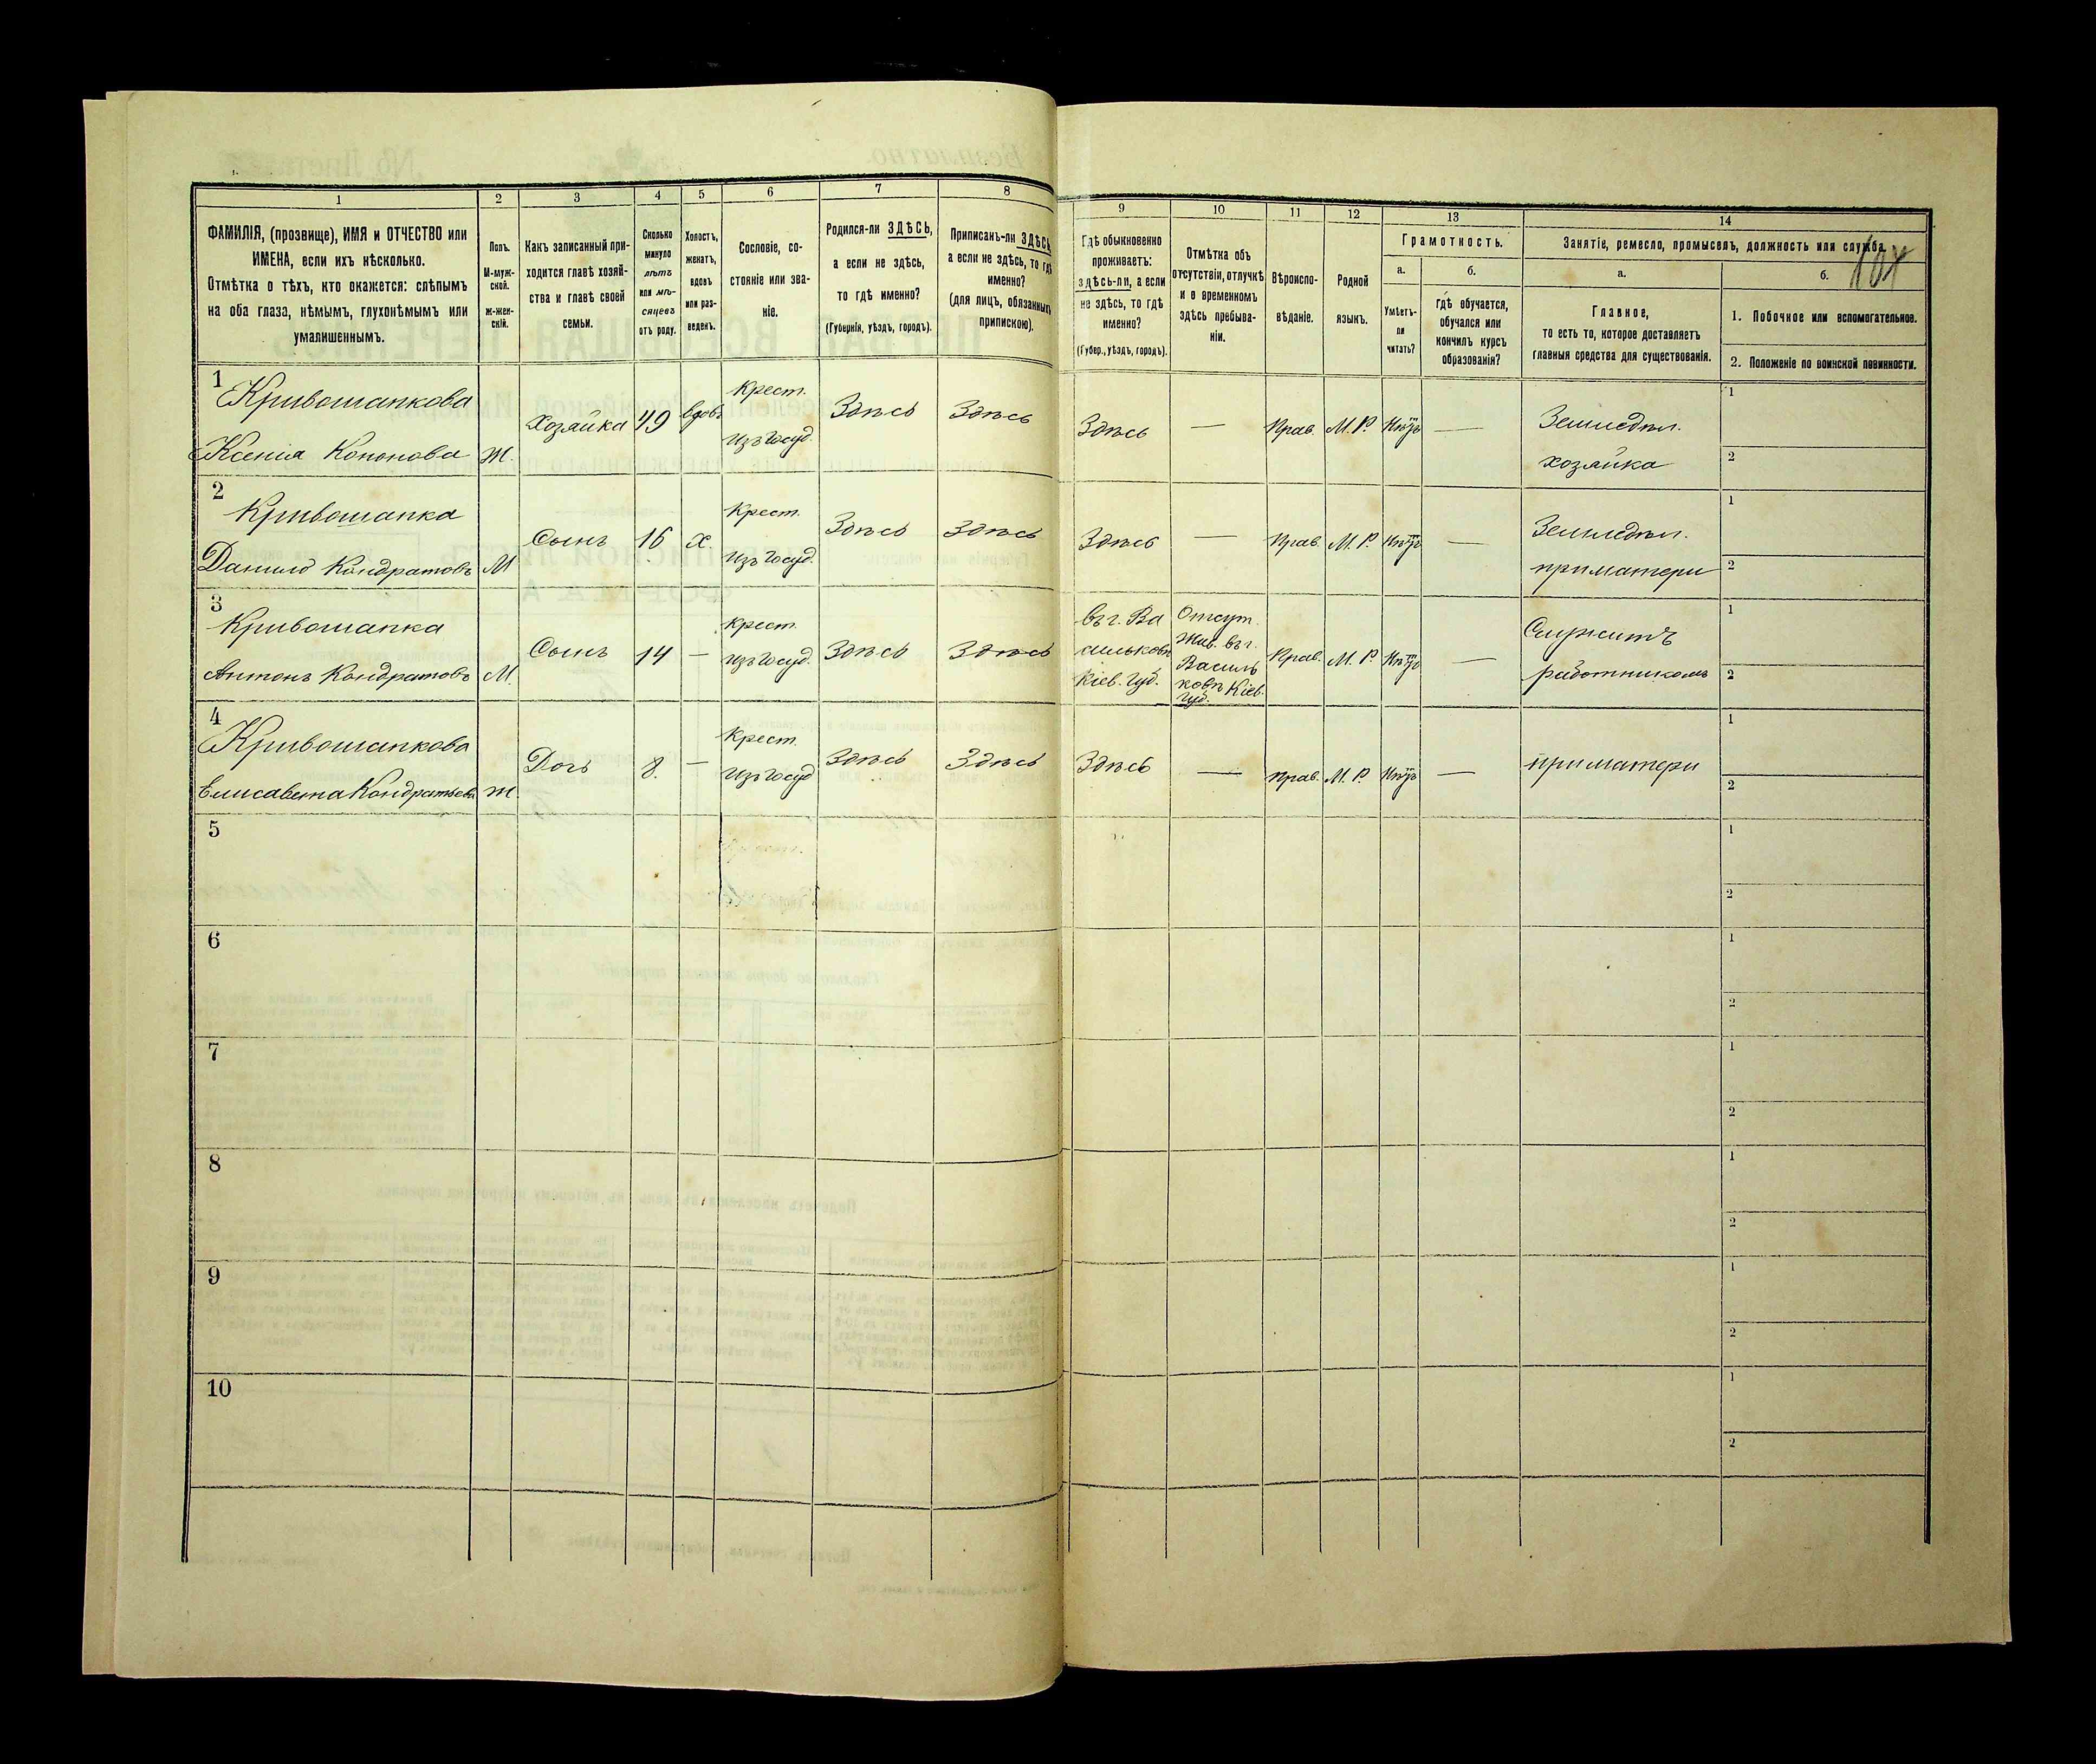 1 2 3 4 5 6 7 8 9 10 11 12 13 14
ФАМИЛІЯ, (прозвище), ИМЯ и ОТЧЕСТВО или
ИМЕНА, если ихъ нѣсколько.
Отмѣтка о тѣхъ, кто окажется: слѣпымъ
на оба глаза, нѣмымъ, глухонѣмымъ или
умалишеннымъ.
Полъ.
М-муж-
ской.
ж-жен-
скій.
Какъ записанный при-
ходится главѣ хозяй-
ства и главѣ своей
семьи.
Сколько
минуло
лѣтъ
или мѣ-
сяцевъ
отъ роду.
Холостъ,
женатъ,
вдовъ
или раз-
веденъ.
Сословіе, со-
стояніе или зва-
ніе.
Родился-ли ЗДѢСЬ,
а если не здѣсь,
то гдѣ именно?
(Губернія, уѣздъ, городъ).
Приписанъ-ли ЗДѢСЬ,
а если не здѣсь, то гдѣ
именно?
(для лицъ, обязанныхъ
припискою).
Гдѣ обыкновенно
проживаетъ:
здѣсь-ли, а если
не здѣсь, то гдѣ
именно?
(Губер., уѣздъ, городъ).
Отмѣтка объ
отсутствіи, отлучкѣ
и о временномъ
здѣсь пребыва-
ніи.
Вѣроиспо-
вѣданіе.
Родной
языкъ.
Грамотность.
а.
Умѣетъ-
ли
читать?
б.
гдѣ обучается,
обучался или
кончилъ курсъ
образованія?
Занятіе, ремесло, промыселъ, должность или служба.
а.
Главное,
то есть то, которое доставляетъ
главныя средства для существованія.
б.
1. Побочное или вспомогательное.
2. Положеніе по воинской повинности.
1 Кривошапкова
Ксенія Кононова
Ж.
Хозяйка
49
вдов.
Крест.
изъ Госуд.
Здѣсь
Здѣсь
Здѣсь
—
Прав.
М. Р.
Нѣтъ
—
Земледѣл.
хозяйка
1
2
2 Кривошапка
Данило Кондратовъ
М
Сынъ
16
х.
Крест.
изъ Госуд.
Здѣсь
Здѣсь
Здѣсь
—
Прав.
М. Р.
Нѣтъ
—
Земледѣл.
при матери
1
2
3 Кривошапка
Антонъ Кондратовъ
М.
Сынъ
14
—
Крест.
изъ Госуд.
Здѣсь
Здѣсь
въ г. Ва
сильковѣ
Кіев. Губ.
Отсут.
Жив. въ г.
Василь
ковѣ Кіев.
Губ.
Прав.
М. Р.
Нѣтъ
—
Служитъ
работникомъ
1
2
4 Кривошапкова
Елисавета Кондратьева
ж.
Дочь
8.
—
Крест.
изъ Госуд
Здѣсь
Здѣсь
Здѣсь
—
Прав.
М. Р.
Нѣтъ
—
при матери
1
2
5
1
2
6
1
2
7
1
2
8
1
2
9
1
2
10
1
2